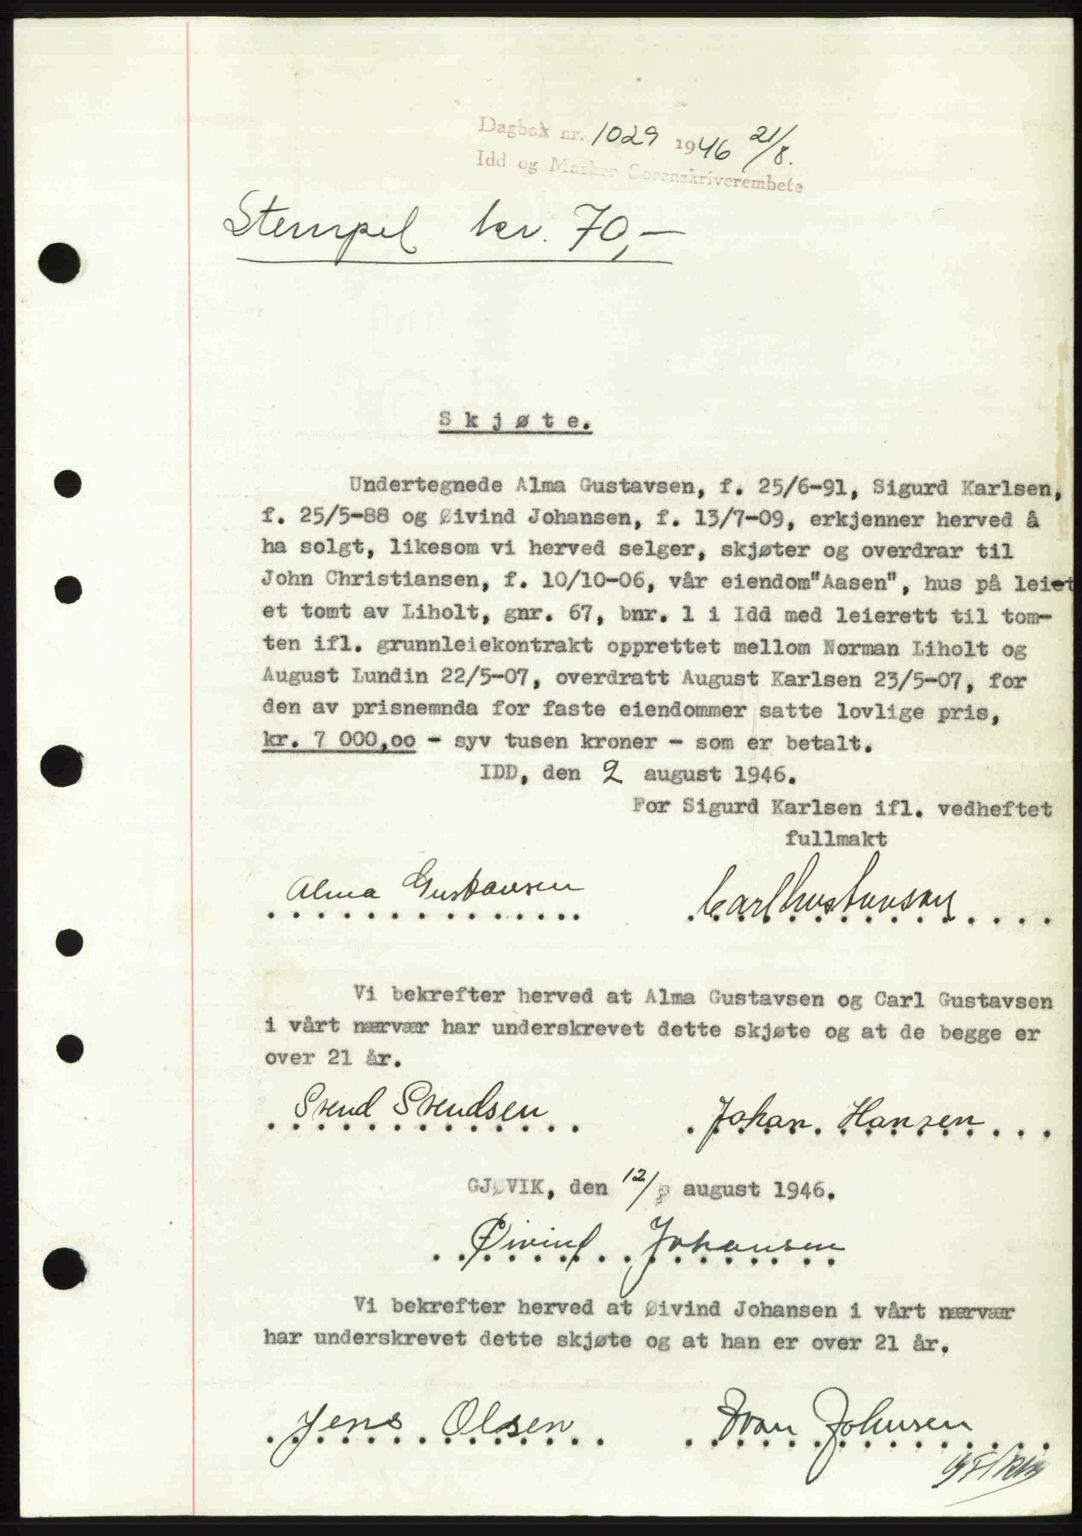 Dagbok nr. 1029 1946 21/8.
Idd og Marker Sorenskriverembete
Stempel kr. 70,-
Skjøte.
Undertegnede Alma Gustavsen, f. 25/6-91, Sigurd Karlsen,
f. 25/5-88 og Øivind Johansen, f. 13/7-09, erkjenner herved å
ha solgt, likesom vi herved selger, skjøter og overdrar til
John Christiansen, f. 10/10-06, vår eiendom"Aasen", hus på leiet
et tomt av Liholt, gnr. 67, bnr. 1 i Idd med leierett til tom-
ten ifl. grunnleiekontrakt opprettet mellom Norman Liholt og
August Lundin 22/5-07, overdratt August Karlsen 23/5-07, for
den av prisnemnda for faste eiendommer satte lovlige pris,
kr. 7 000,oo - syv tusen kroner - som er betalt.
IDD, den 2 august 1946.
For Sigurd Karlsen ifl. vedheftet
fullmakt
Alma Gustavsen Carl Gustavsen
Vi bekrefter herved at Alma Gustavsen og Carl Gustavsen
i vårt nærvær har underskrevet dette skjøte og at de begge er
over 21 år.
Svend Svendsen Johan Hansen
GJØVIK, den 12/8 august 1946.
Øivind Johansen
Vi bekrefter herved at Øivind Johansen i vårt nærvær
har underskrevet dette skjøte og at han er over 21 år.
Jens Olsen Ivan Johnsen